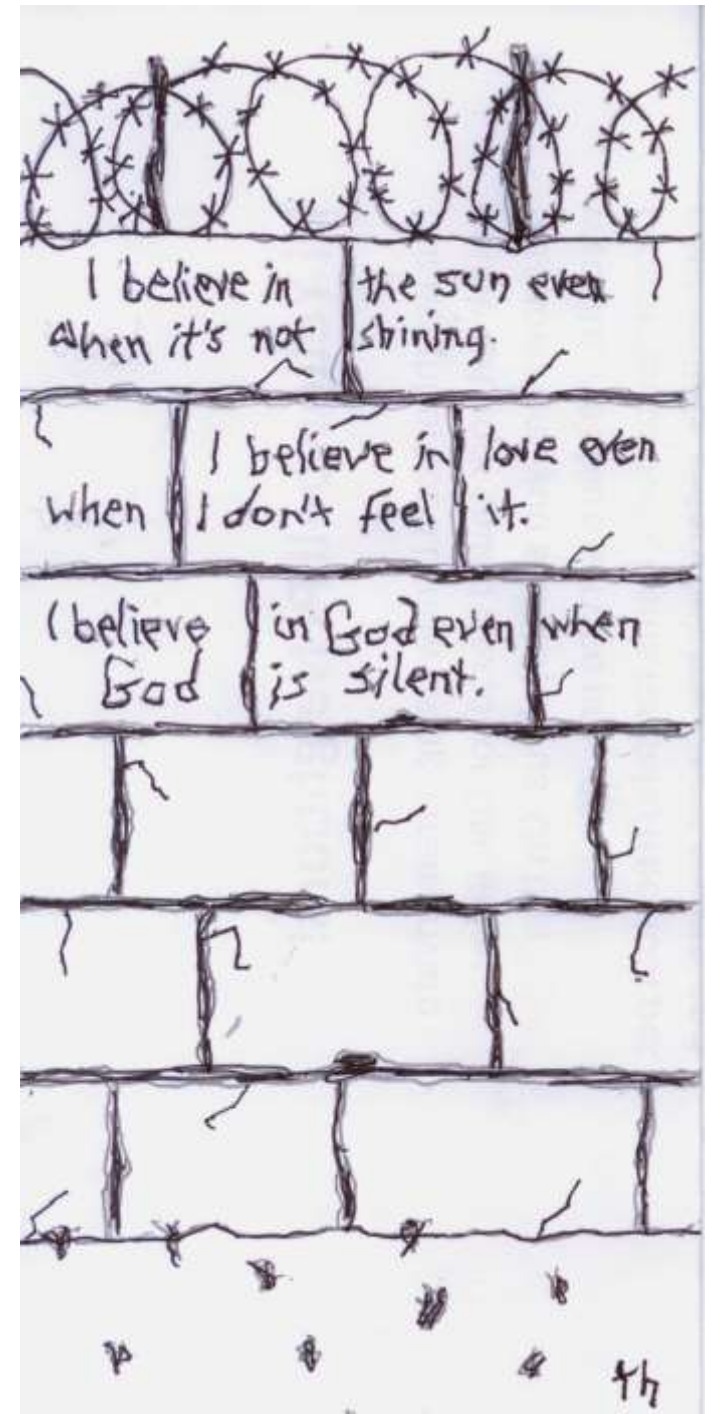 I believe in the sun even
when it's not shining.
I believe in love even
when I don't feel it.
I believe in God even when
God is silent.